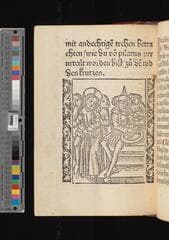 mit andechtigē trehen betra
chten / wie du vō pilatus ver
urteilt worden bist zů dē tod
des krutzes.